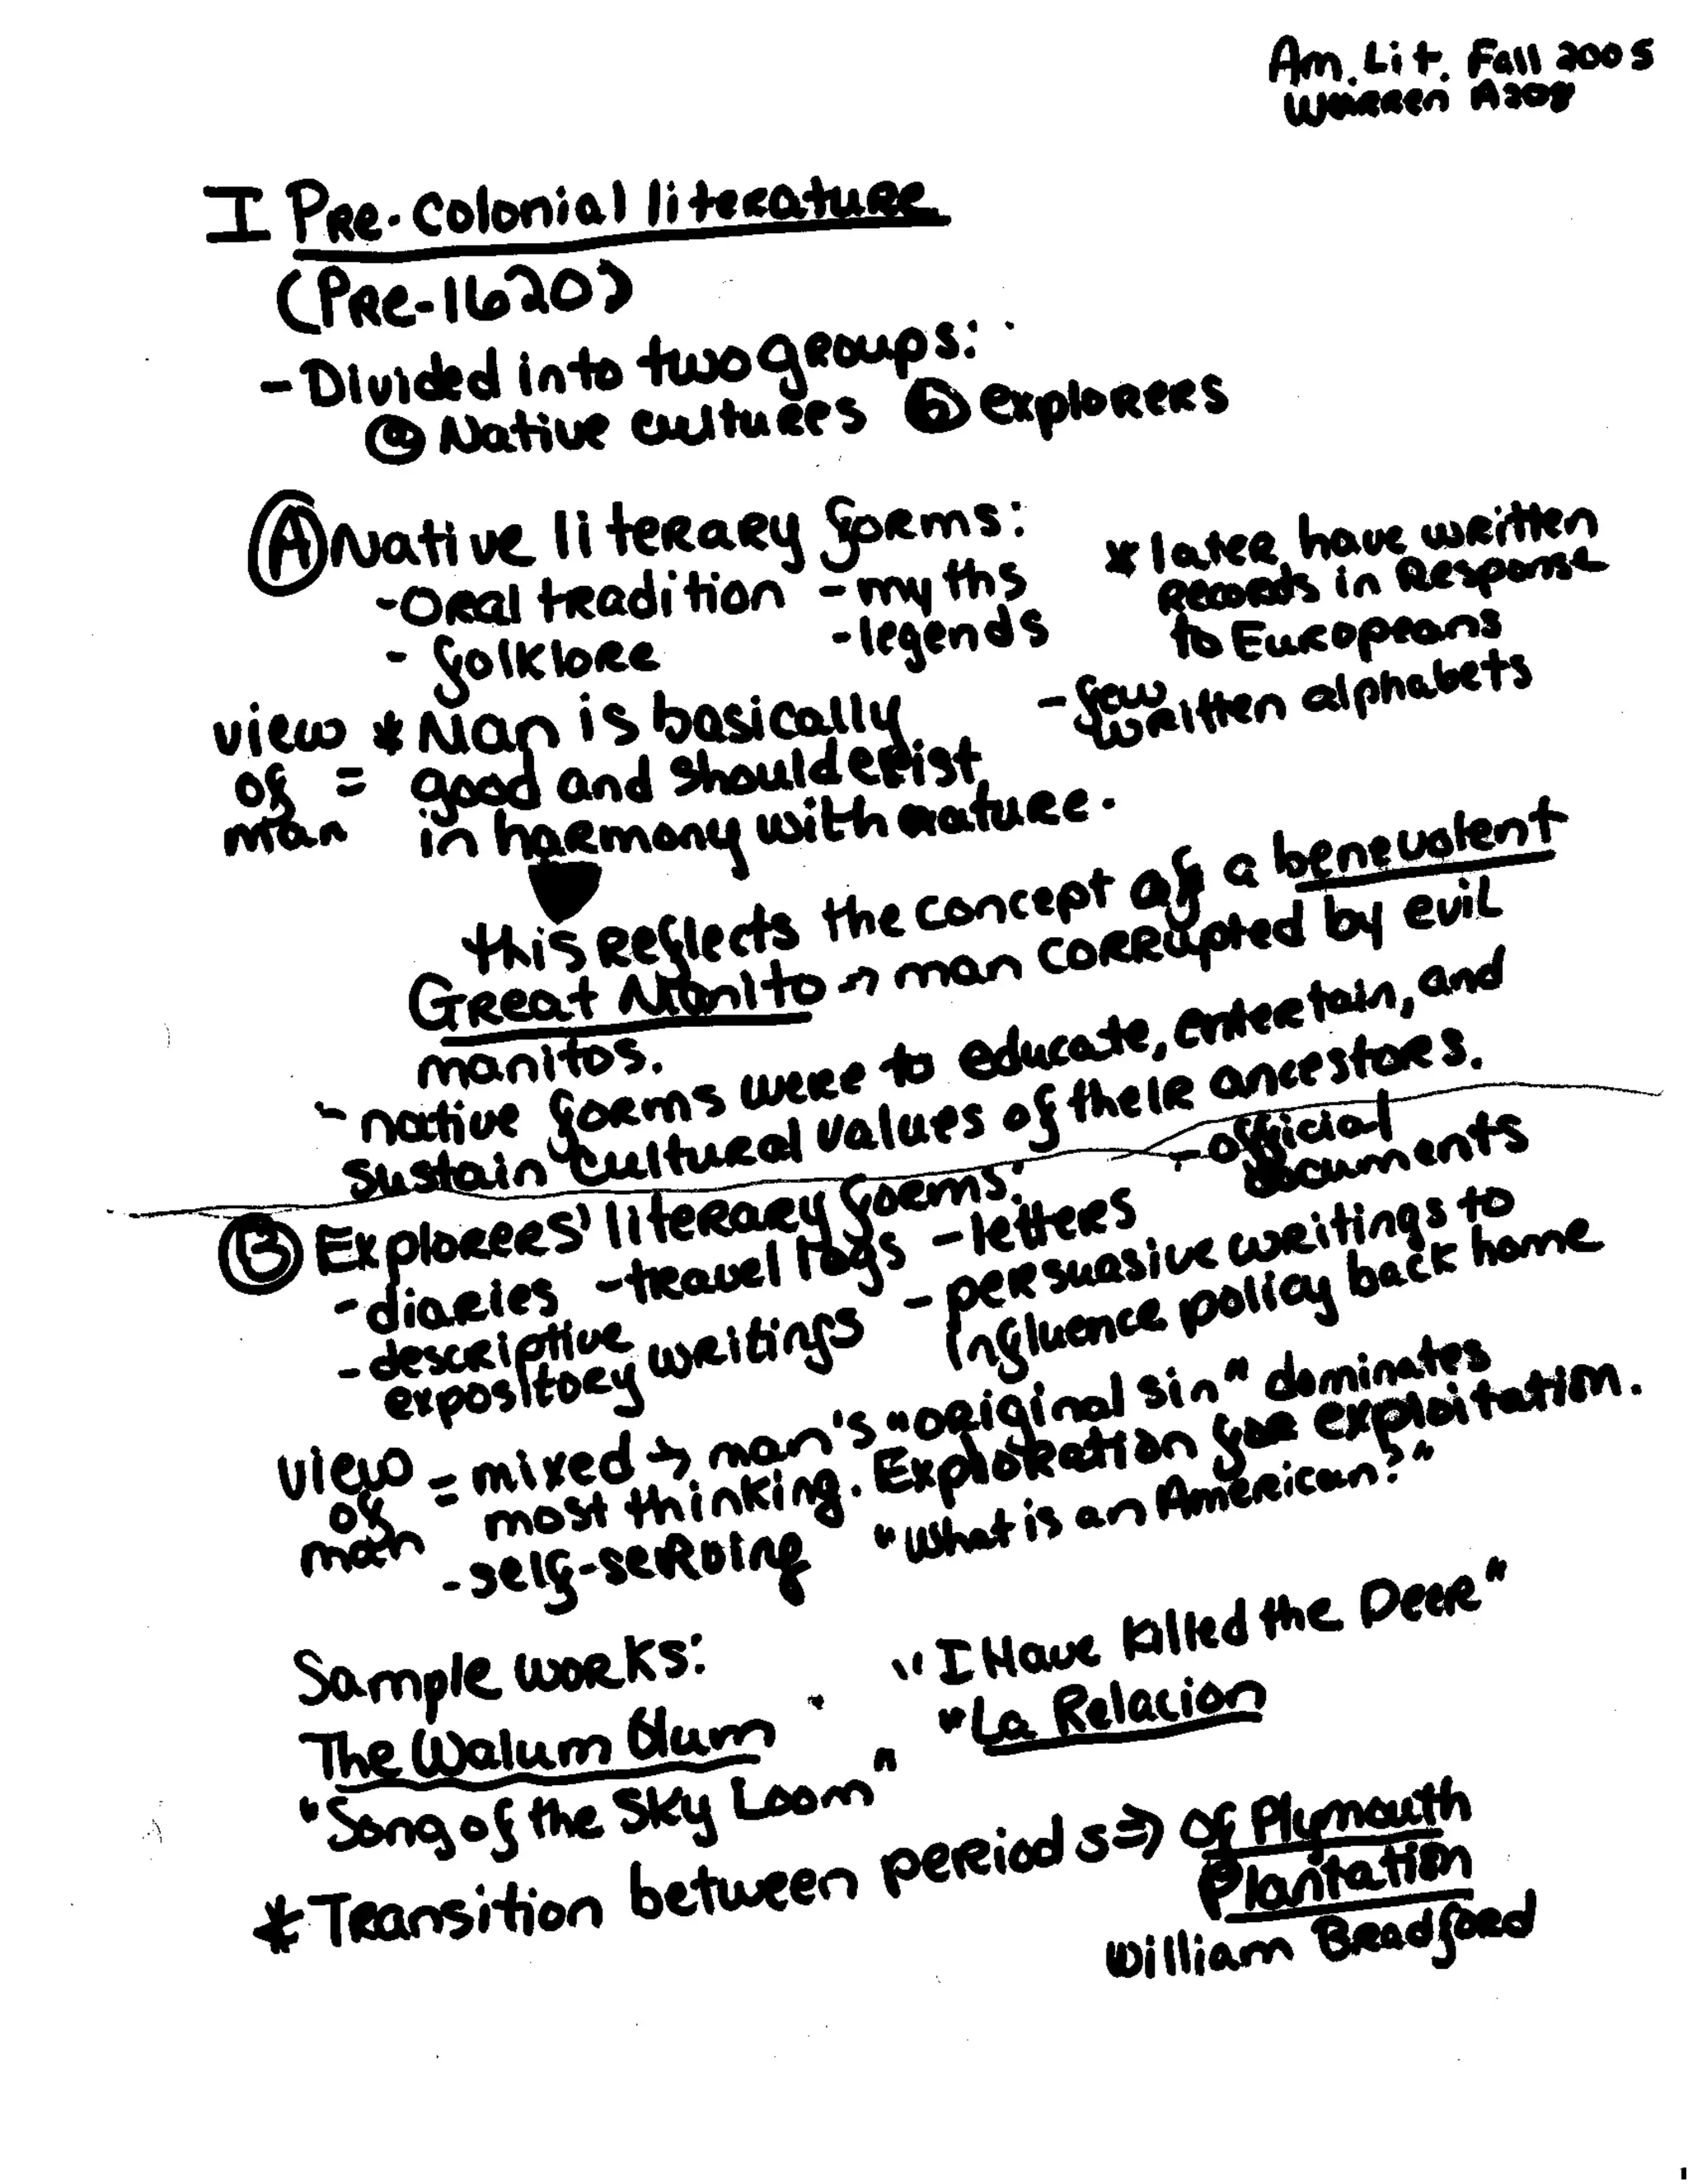 Am. Lit. Fall 2005
Warren A208
I Pre-Colonial literature
(Pre-1620)
- Divided into two groups:
ⓐ Native cultures ⓑ explorers
Ⓐ Native literary forms:
- Oral tradition - myths
- folklore - legends
* later have written
Records in Response
to Europeans
- few
written alphabets
view * Man is basically
of = good and should exist
man in harmony with nature.
this reflects the concept of a benevolent
Great Manito → man corrupted by evil
manitos.
- native forms were to educate, entertain, and
sustain cultural values of their ancestors.
Ⓑ Explorers' literary forms: - official
documents
- diaries - travel logs - letters
- descriptive - persuasive writings to
expository writings influence policy back home
view = mixed → man's "original sin" dominates
of most thinking. Exploration for exploitation.
man - self-serving "What is an American?"
Sample works: "I Have Killed the Deer"
The Walum Olum "La Relacion
"Song of the Sky Loom"
* Transition between periods ⇒ Of Plymouth
Plantation
William Bradford
1